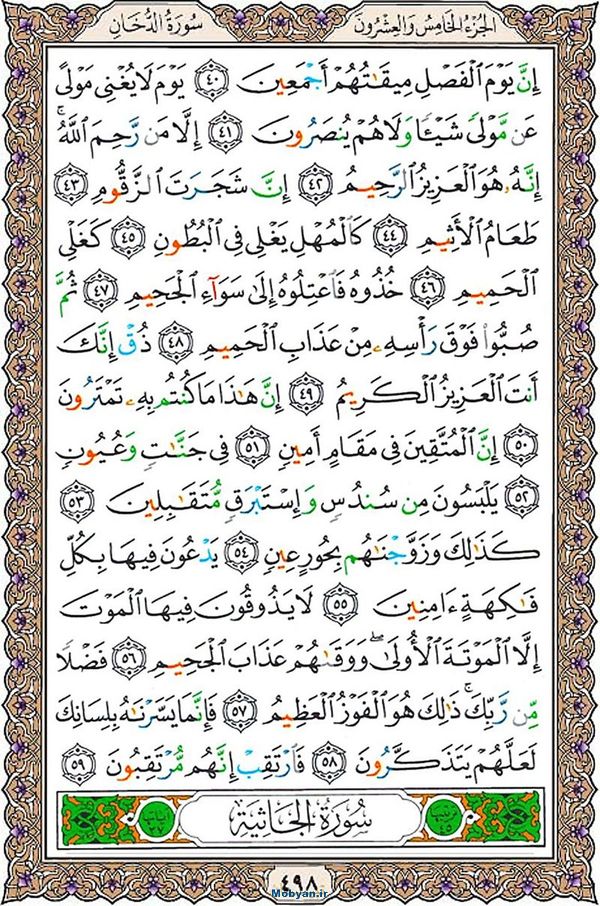 الجزء الخامس والعشرون
سورة الدخان
إِنَّ يَوْمَ ٱلْفَصْلِ مِيقَـٰتُهُمْ أَجْمَعِينَ ٤٠ يَوْمَ لَا يُغْنِى مَوْلًى
عَن مَّوْلًى شَيْـًٔا وَلَا هُمْ يُنصَرُونَ ٤١ إِلَّا مَن رَّحِمَ ٱللَّهُ ۚ
إِنَّهُۥ هُوَ ٱلْعَزِيزُ ٱلرَّحِيمُ ٤٢ إِنَّ شَجَرَتَ ٱلزَّقُّومِ ٤٣
طَعَامُ ٱلْأَثِيمِ ٤٤ كَٱلْمُهْلِ يَغْلِى فِى ٱلْبُطُونِ ٤٥ كَغَلْىِ
ٱلْحَمِيمِ ٤٦ خُذُوهُ فَٱعْتِلُوهُ إِلَىٰ سَوَآءِ ٱلْجَحِيمِ ٤٧ ثُمَّ
صُبُّوا۟ فَوْقَ رَأْسِهِۦ مِنْ عَذَابِ ٱلْحَمِيمِ ٤٨ ذُقْ إِنَّكَ
أَنتَ ٱلْعَزِيزُ ٱلْكَرِيمُ ٤٩ إِنَّ هَـٰذَا مَا كُنتُم بِهِۦ تَمْتَرُونَ
٥٠ إِنَّ ٱلْمُتَّقِينَ فِى مَقَامٍ أَمِينٍ ٥١ فِى جَنَّـٰتٍ وَعُيُونٍ
٥٢ يَلْبَسُونَ مِن سُندُسٍ وَإِسْتَبْرَقٍ مُّتَقَـٰبِلِينَ ٥٣
كَذَٰلِكَ وَزَوَّجْنَـٰهُم بِحُورٍ عِينٍ ٥٤ يَدْعُونَ فِيهَا بِكُلِّ
فَـٰكِهَةٍ ءَامِنِينَ ٥٥ لَا يَذُوقُونَ فِيهَا ٱلْمَوْتَ
إِلَّا ٱلْمَوْتَةَ ٱلْأُولَىٰ ۖ وَوَقَىٰهُمْ عَذَابَ ٱلْجَحِيمِ ٥٦ فَضْلًا
مِّن رَّبِّكَ ۚ ذَٰلِكَ هُوَ ٱلْفَوْزُ ٱلْعَظِيمُ ٥٧ فَإِنَّمَا يَسَّرْنَـٰهُ بِلِسَانِكَ
لَعَلَّهُمْ يَتَذَكَّرُونَ ٥٨ فَٱرْتَقِبْ إِنَّهُم مُّرْتَقِبُونَ ٥٩
سورة الجاثية
٤٩٨
Mobyan.ir